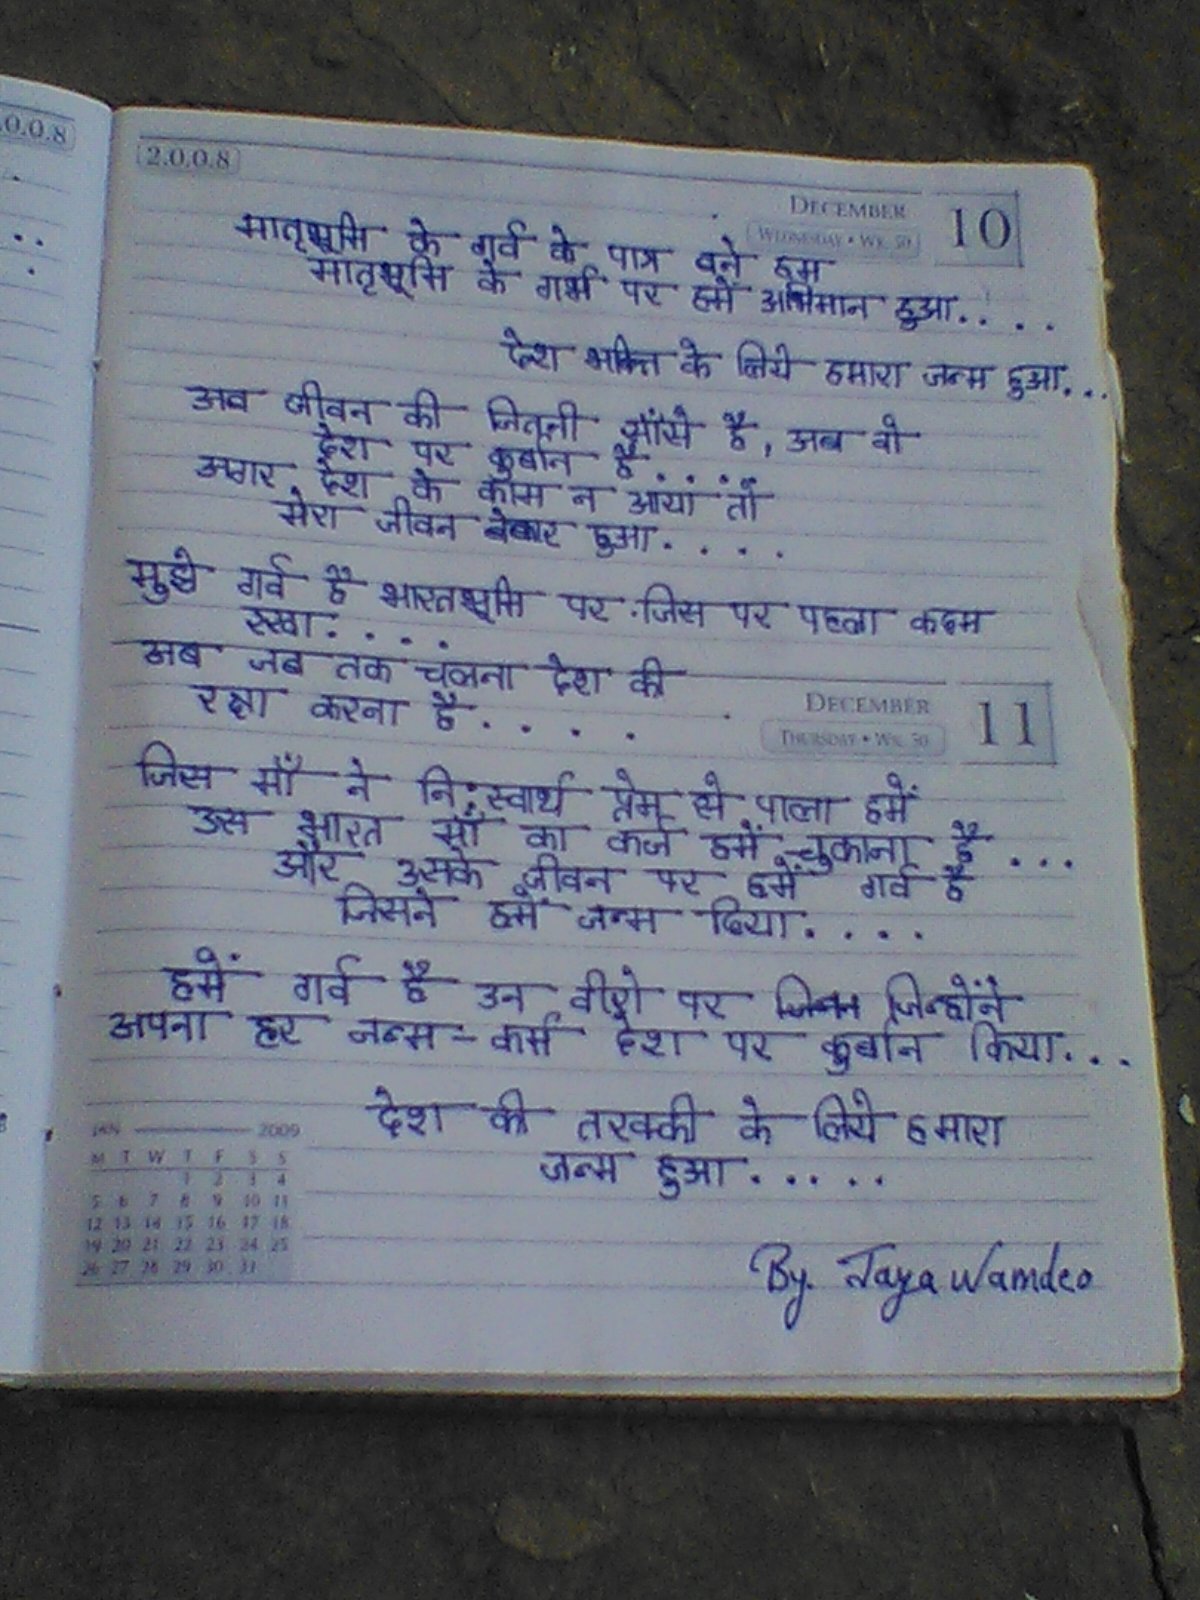 2.0.0.8
.0.0.8
DECEMBER 10
WEDNESDAY • WK. 50
मातृभूमि के गर्व के पात्र बने हम
मातृभूमि के गर्भ पर हमें अभिमान हुआ....
देश भक्ति के लिये हमारा जन्म हुआ...
अब जीवन की जितनी साँसे है, अब वो
देश पर कुर्बान है.....
अगर देश के काम न आया तो
मेरा जीवन बेकार हुआ....
मुझे गर्व है भारतभूमि पर जिस पर पहला कदम
रखा....
अब जब तक चलना देश की
रक्षा करना है....
DECEMBER 11
THURSDAY • WK. 50
जिस माँ ने नि:स्वार्थ प्रेम से पाला हमें
उस भारत माँ का कर्ज हमें चुकाना है...
और उसके जीवन पर हमें गर्व है
जिसने हमें जन्म दिया....
हमें गर्व है उन वीरो पर जिन्होंने
अपना हर जन्म - कर्म देश पर कुर्बान किया...
देश की तरक्की के लिये हमारा
जन्म हुआ.....
JAN 2009
M T W T F S S
1 2 3 4
5 6 7 8 9 10 11
12 13 14 15 16 17 18
19 20 21 22 23 24 25
26 27 28 29 30 31
By. Jaya Wamdeo